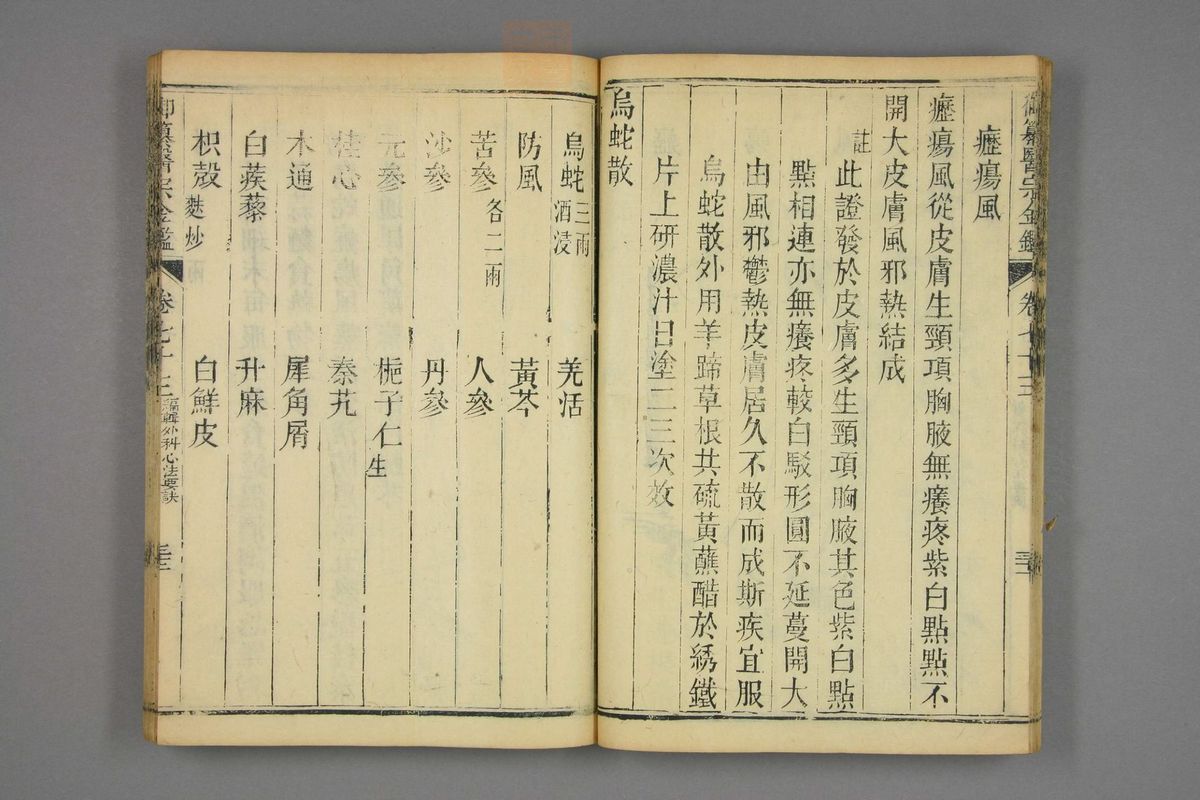 御纂醫宗金鑑 卷七十三
癧瘍風
癧瘍風從皮膚生頸項胸腋無癢疼紫白點點不
開大皮膚風邪熱結成
註 此證發於皮膚多生頸項胸腋其色紫白點
點相連亦無癢疼較白駁形圓不延蔓開大
由風邪鬱熱皮膚居久不散而成斯疾宜服
烏蛇散外用羊蹄草根共硫黃蘸醋於綉鐵
片上研濃汁日塗二三次效
烏蛇散
烏蛇 三兩酒浸 羌活
防風 黃芩
苦參 各二兩 人參
沙參 丹參
元參 梔子仁 生
桂心 秦艽
木通 犀角屑
白蒺藜 升麻
枳殼 麩炒 白鮮皮
御纂醫宗金鑑 卷七十三 編輯外科心法要訣